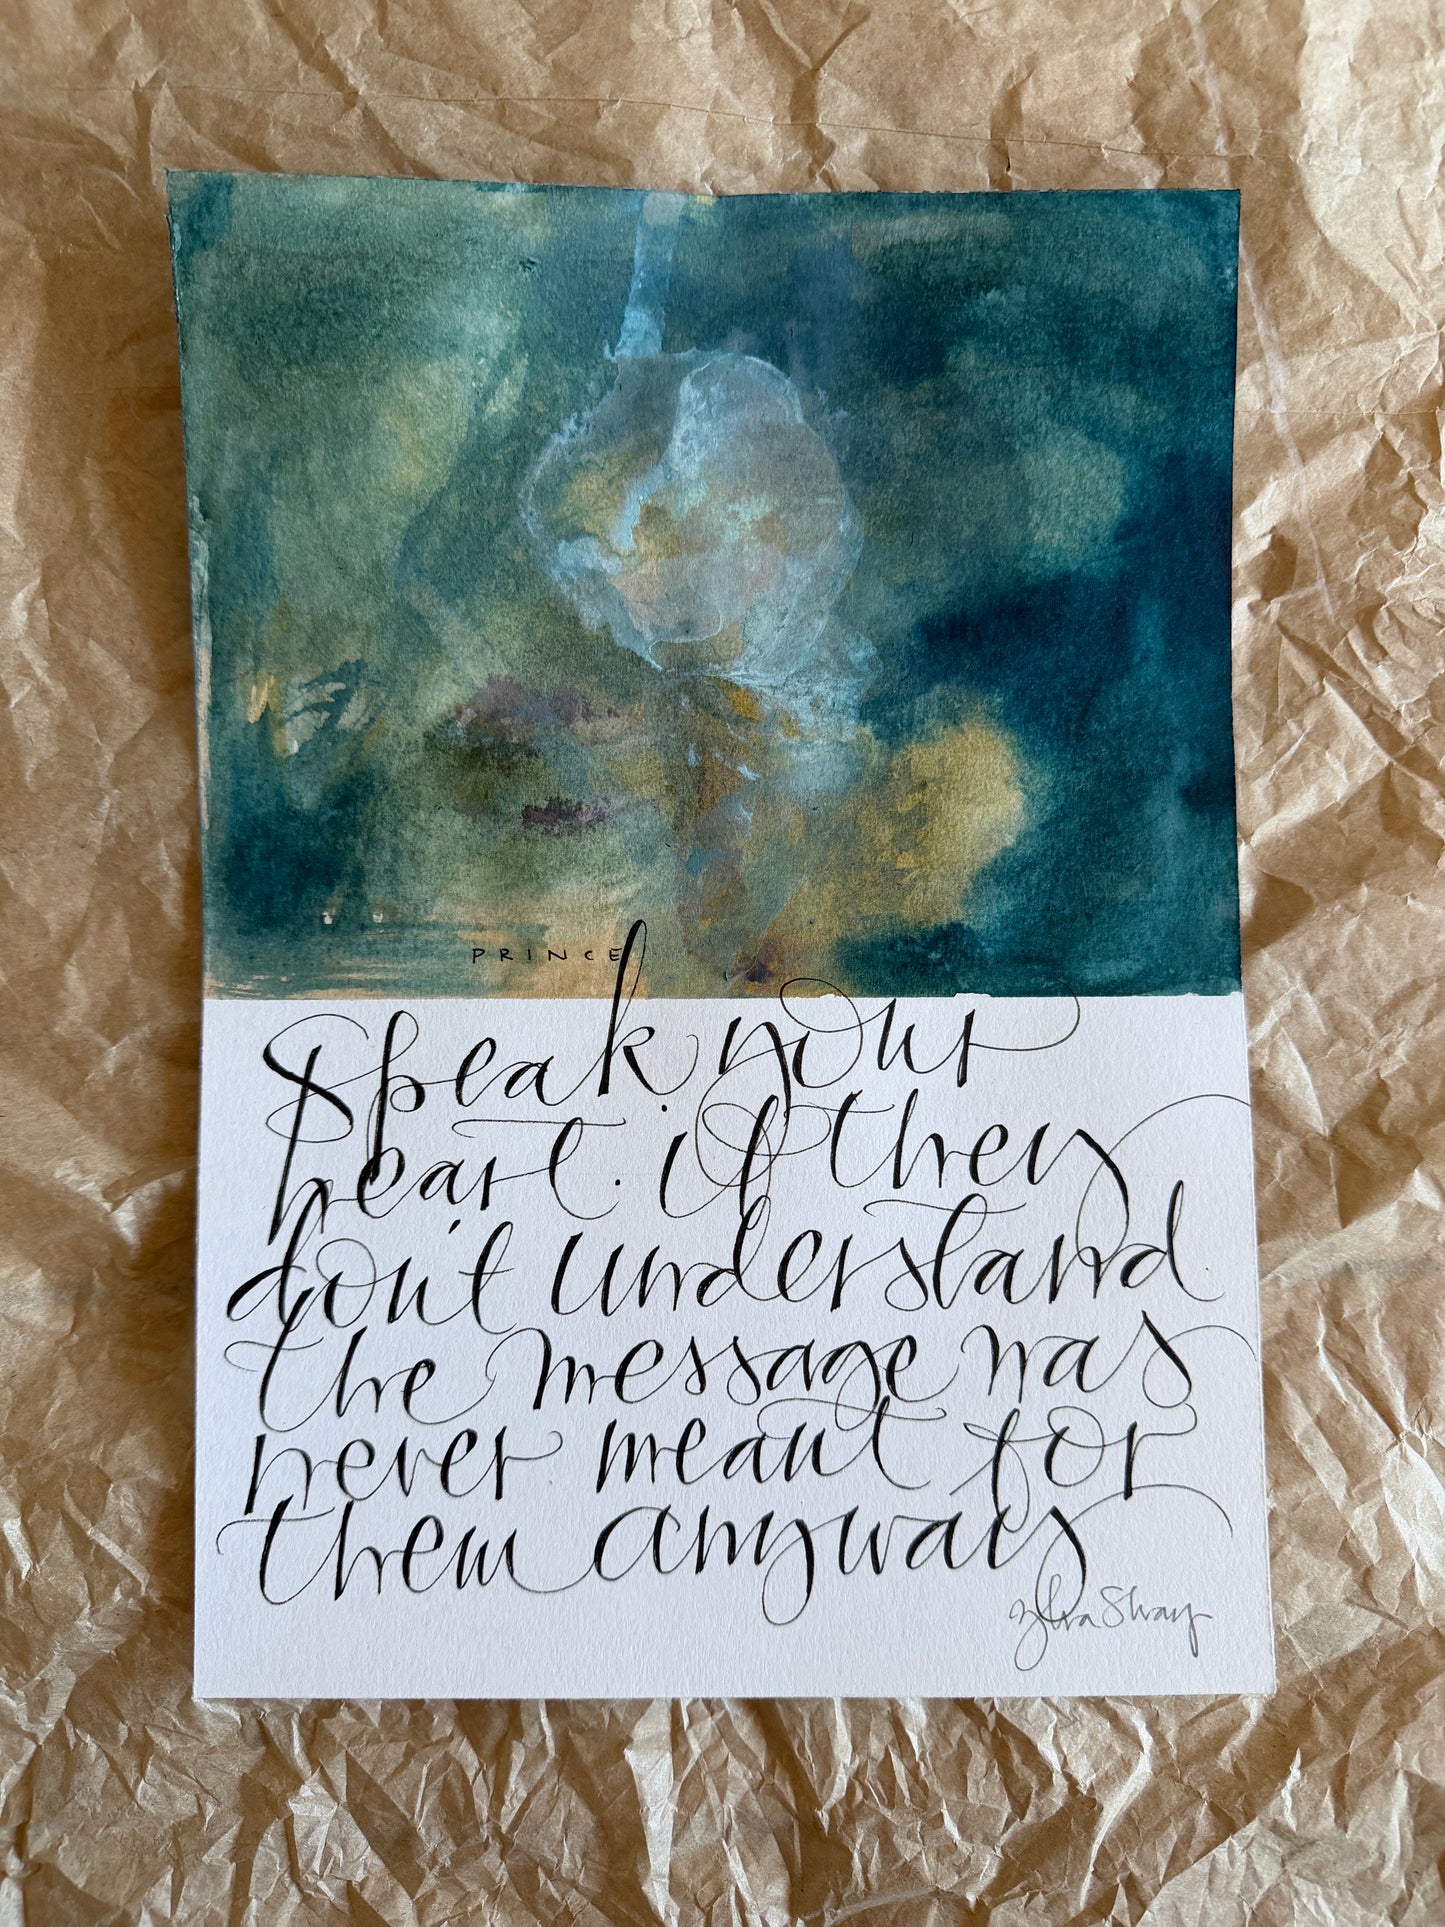 PRINCE
Speak your
heart. if they
don't understand.
the message was
never meant for
them anyways